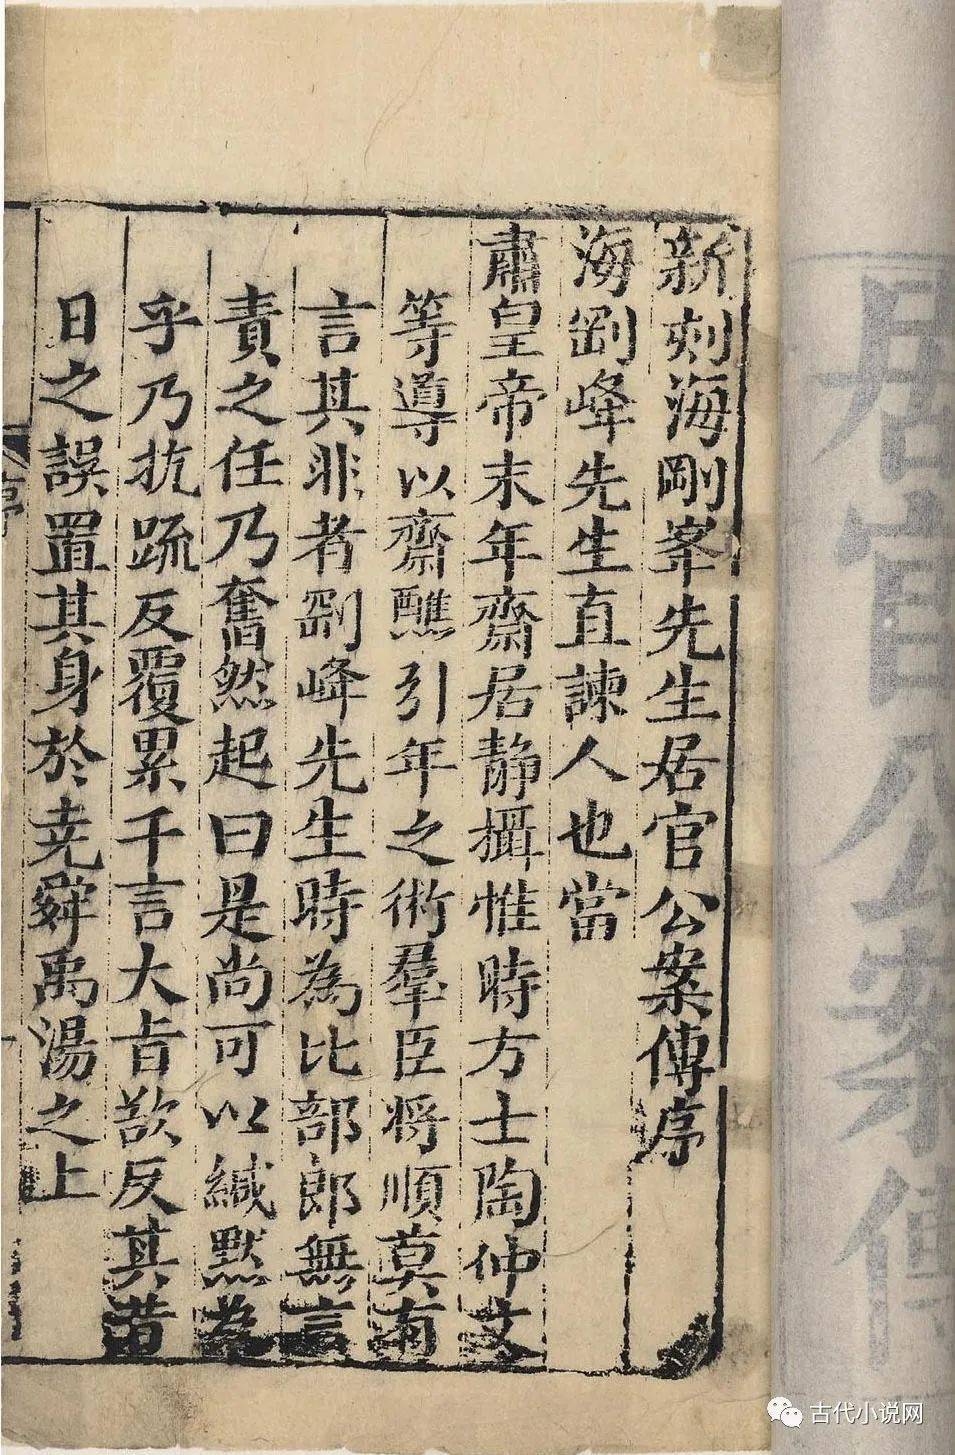 新刻海剛峯先生居官公案傳序
海剛峰先生直諫人也當
肅皇帝末年齋居静攝惟時方士陶仲文
等導以齋醮引年之術羣臣将順莫有
言其非者剛峰先生時為比部郎無言
責之任乃奮然起曰是尚可以緘默為
乎乃抗疏反覆累千言大旨欲反其昔
日之誤置其身於尭舜禹湯之上
序
居官公案傳
古代小说网